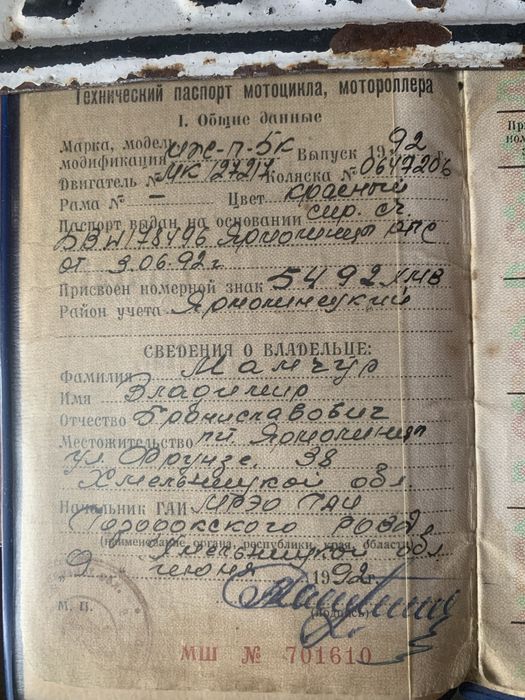 Технический паспорт мотоцикла, мотороллера
I. Общие данные
Марка, модель, модификация ИЖ-П-5К Выпуск 1992 г.
Двигатель № МК 7274 Коляска № 0647206
Рама № — Цвет красный
Паспорт выдан на основании спр. сч
БВИ 178496 Ярмолинцы РПС
от 9.06.92г
Присвоен номерной знак 5492 ХМВ
Район учета Ярмолинецкий
СВЕДЕНИЯ О ВЛАДЕЛЬЦЕ:
Фамилия Мамчур
Имя Владимир
Отчество Брониславович
Местожительство пгт Ярмолинцы
ул. Фрунзе, 38
Хмельницкой обл.
Начальник ГАИ МРЭО ГАИ
Городокского РОВД
(наименование органа, республики, края, области)
Хмельницкой обл
„9" июня 1992 г.
М. П.
(подпись)
МШ № 701610